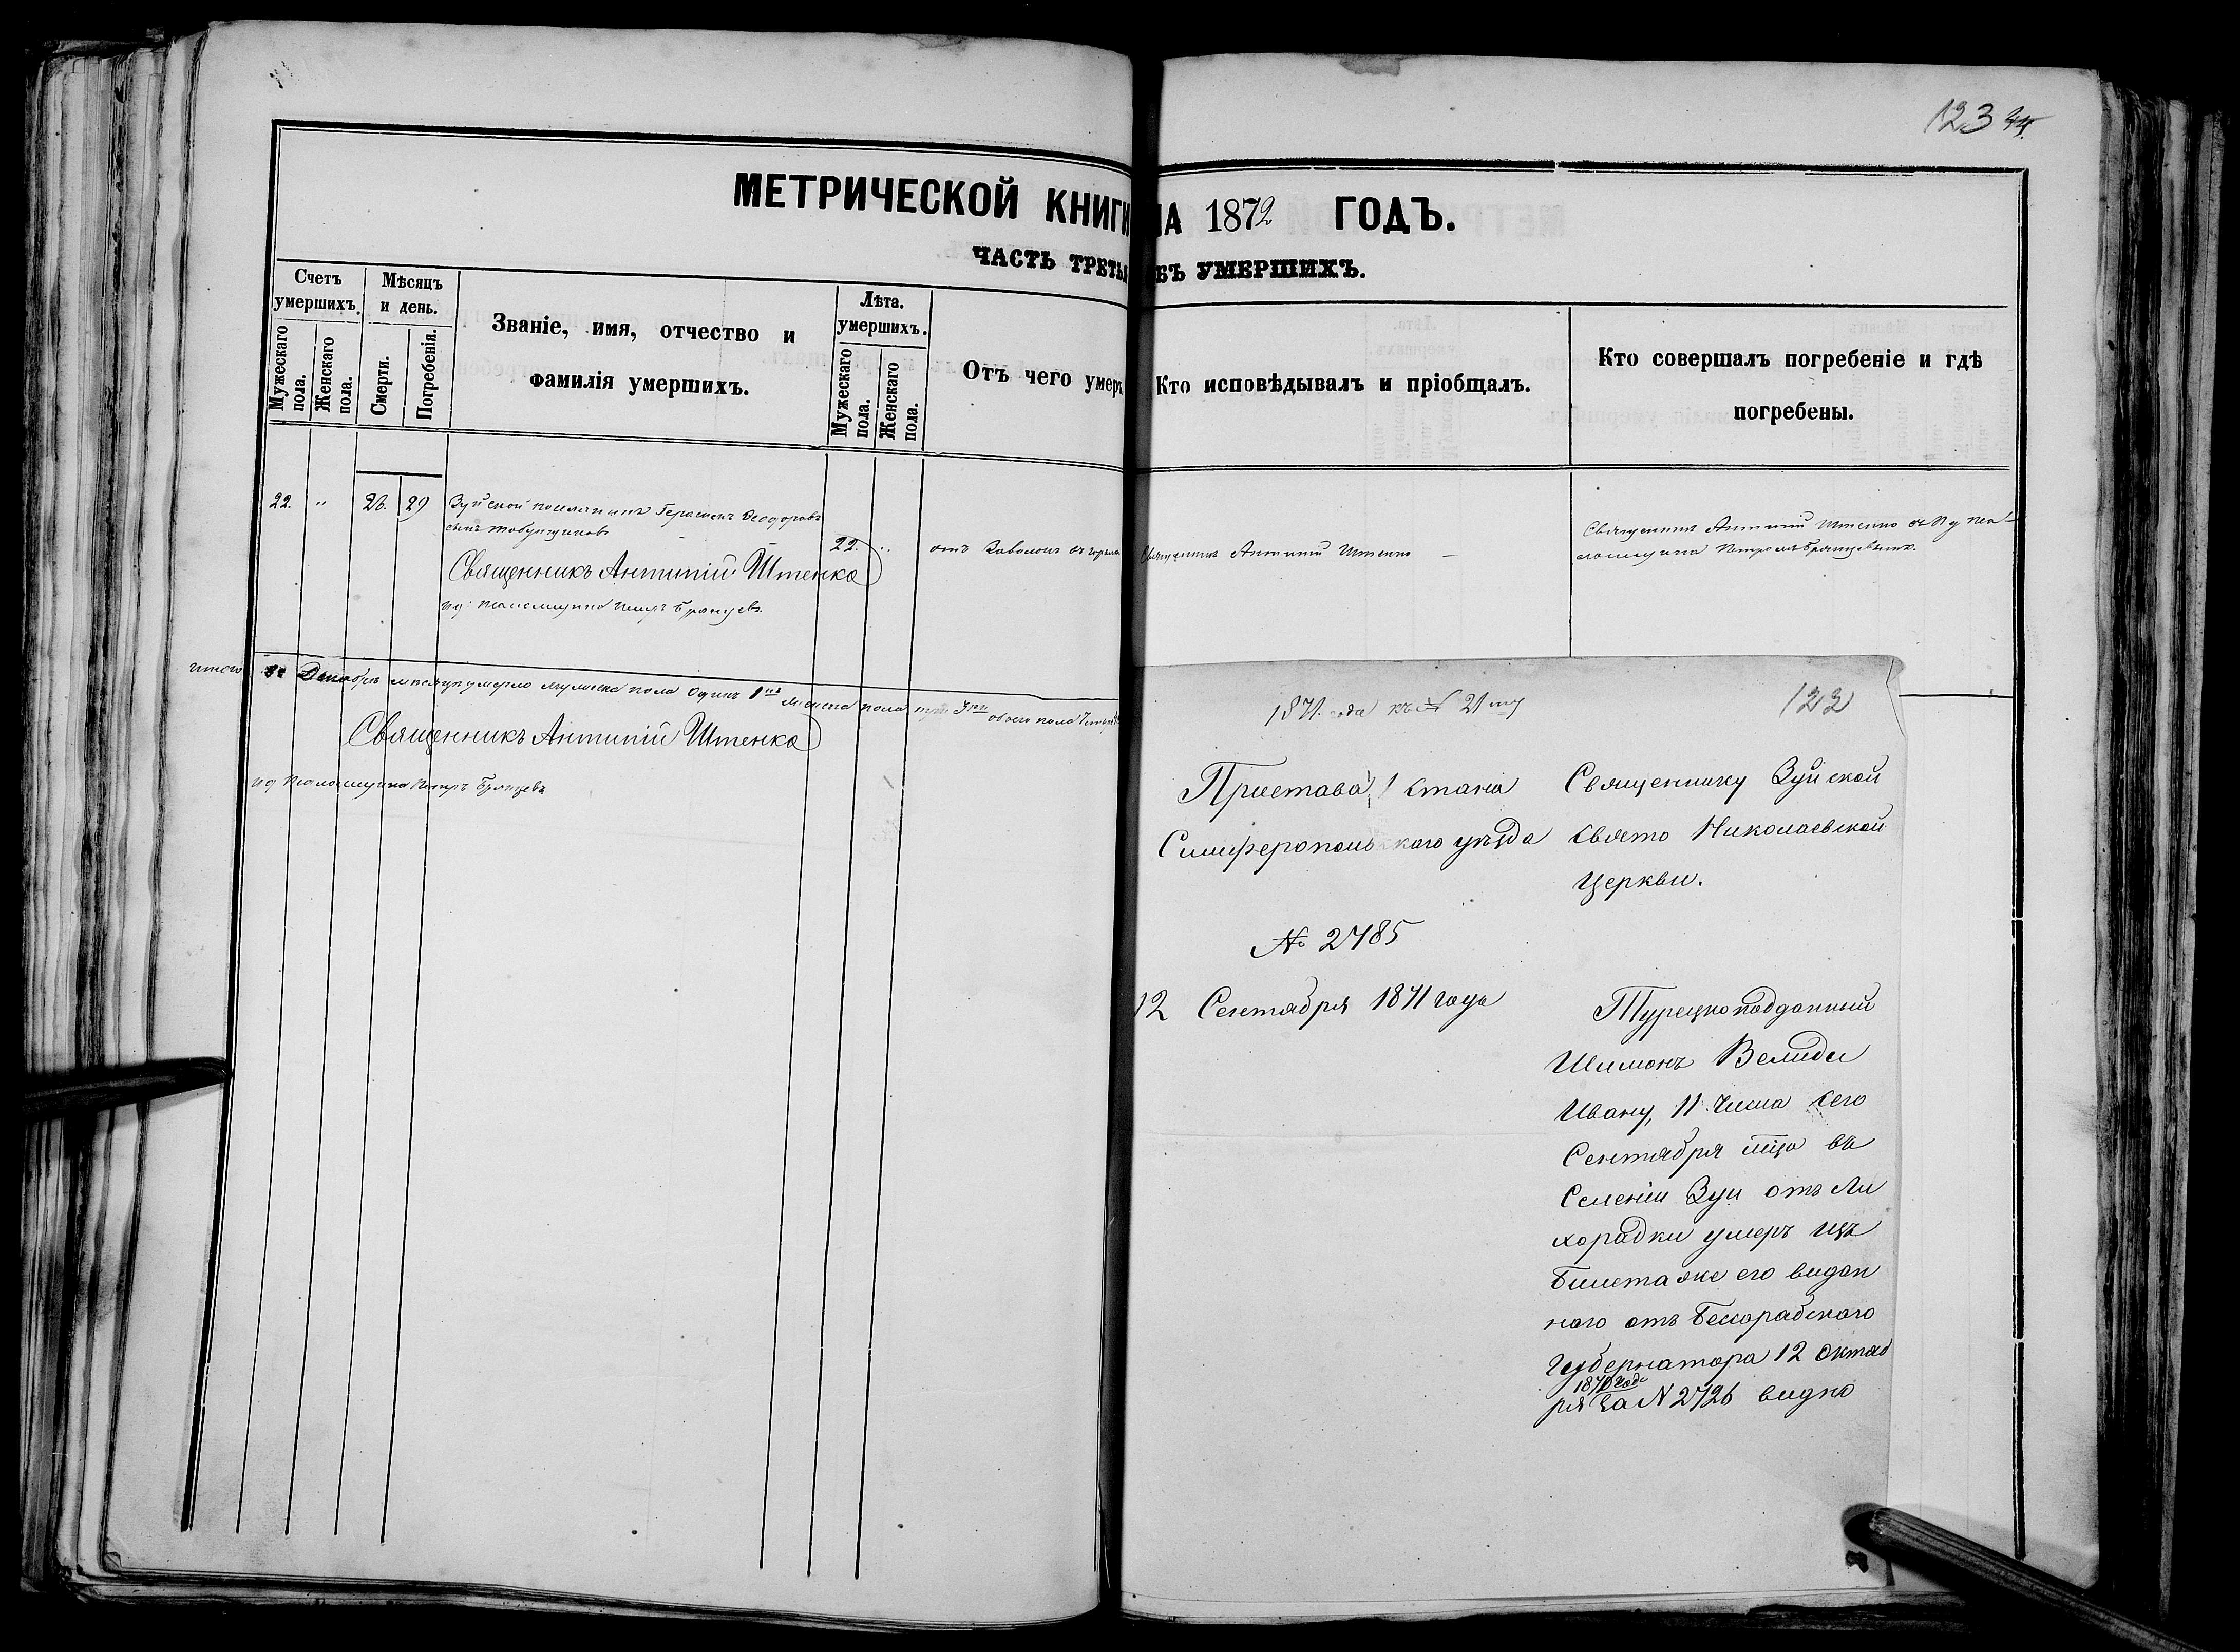 123
МЕТРИЧЕСКОЙ КНИГИ НА 1872 ГОДЪ.
ЧАСТЬ ТРЕТЬЯ ОБЪ УМЕРШИХЪ.
Счетъ умершихъ.
Мужескаго пола.
Женскаго пола.
Мѣсяцъ и день.
Смерти.
Погребенія.
Званіе, имя, отчество и
фамилія умершихъ.
Лѣта.
умершихъ.
Мужескаго пола.
Женскаго пола.
Отъ чего умеръ
Кто исповѣдывалъ и пріобщалъ.
Кто совершалъ погребеніе и гдѣ
погребены.
22. " 26. 29 Зуйской поселянинъ Герасимъ Феодоровъ
сынъ
22. "
отъ
Священникъ Антипій Штенко
Священникъ Антипій Штенко съ И д пса-
ломщика Петромъ Брянцевымъ.
Священникъ Антипій Штенко
ид: псаломщика Петръ Брянцевъ.
итого въ Декабрѣ мѣсяцѣ умерло мужеска пола Одинъ 1 женска пола три 3 обоего пола
Священникъ Антипій Штенко
ид Псаломщика Петръ Брянцевъ
1871 года къ № 21му
122
Пристава 1 стана
Симферопольскаго уѣзда
№ 2785
12 Сентября 1871 года
Священнику Зуйской
Свято Николаевской
Церкви.
Турецкоподданный
Шимонъ Велиди
Ивану, 11 Числа сего
Сентября мца въ
Селеніи Зуи отъ Ли
хорадки умеръ изъ
Билета же его выдан
наго отъ Бессарабскаго
Губернатора 12 Октяб
1870 года
ря за N 2726 видно